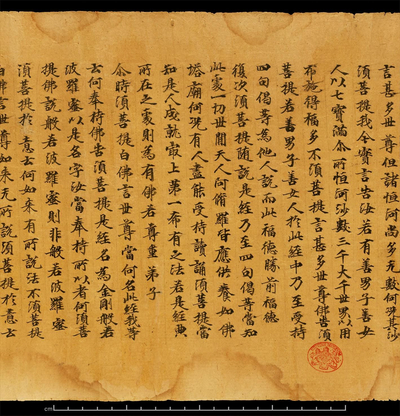 言甚多世尊但諸恒河尚多无數何況其沙
須菩提我今實言告汝若有善男子善女
人以七寶滿尒所恒河沙數三千大千世界以用
布施得福多不須菩提言甚多世尊佛告須
菩提若善男子善女人於此經中乃至受持
四句偈等為他人說而此福德勝前福德
復次須菩提隨說是經乃至四句偈等當知
此處一切世間天人阿脩羅皆應供養如佛
塔廟何況有人盡能受持讀誦須菩提當
知是人成就冣上第一希有之法若是經典
所在之處則為有佛若尊重弟子
尒時須菩提白佛言世尊當何名此經我等
云何奉持佛告須菩提是經名為金剛般若
波羅蜜以是名字汝當奉持所以者何須菩
提佛說般若波羅蜜則非般若波羅蜜
須菩提於意云何如來有所說法不須菩提
白佛言世尊如來无所說須菩提於意云
cm